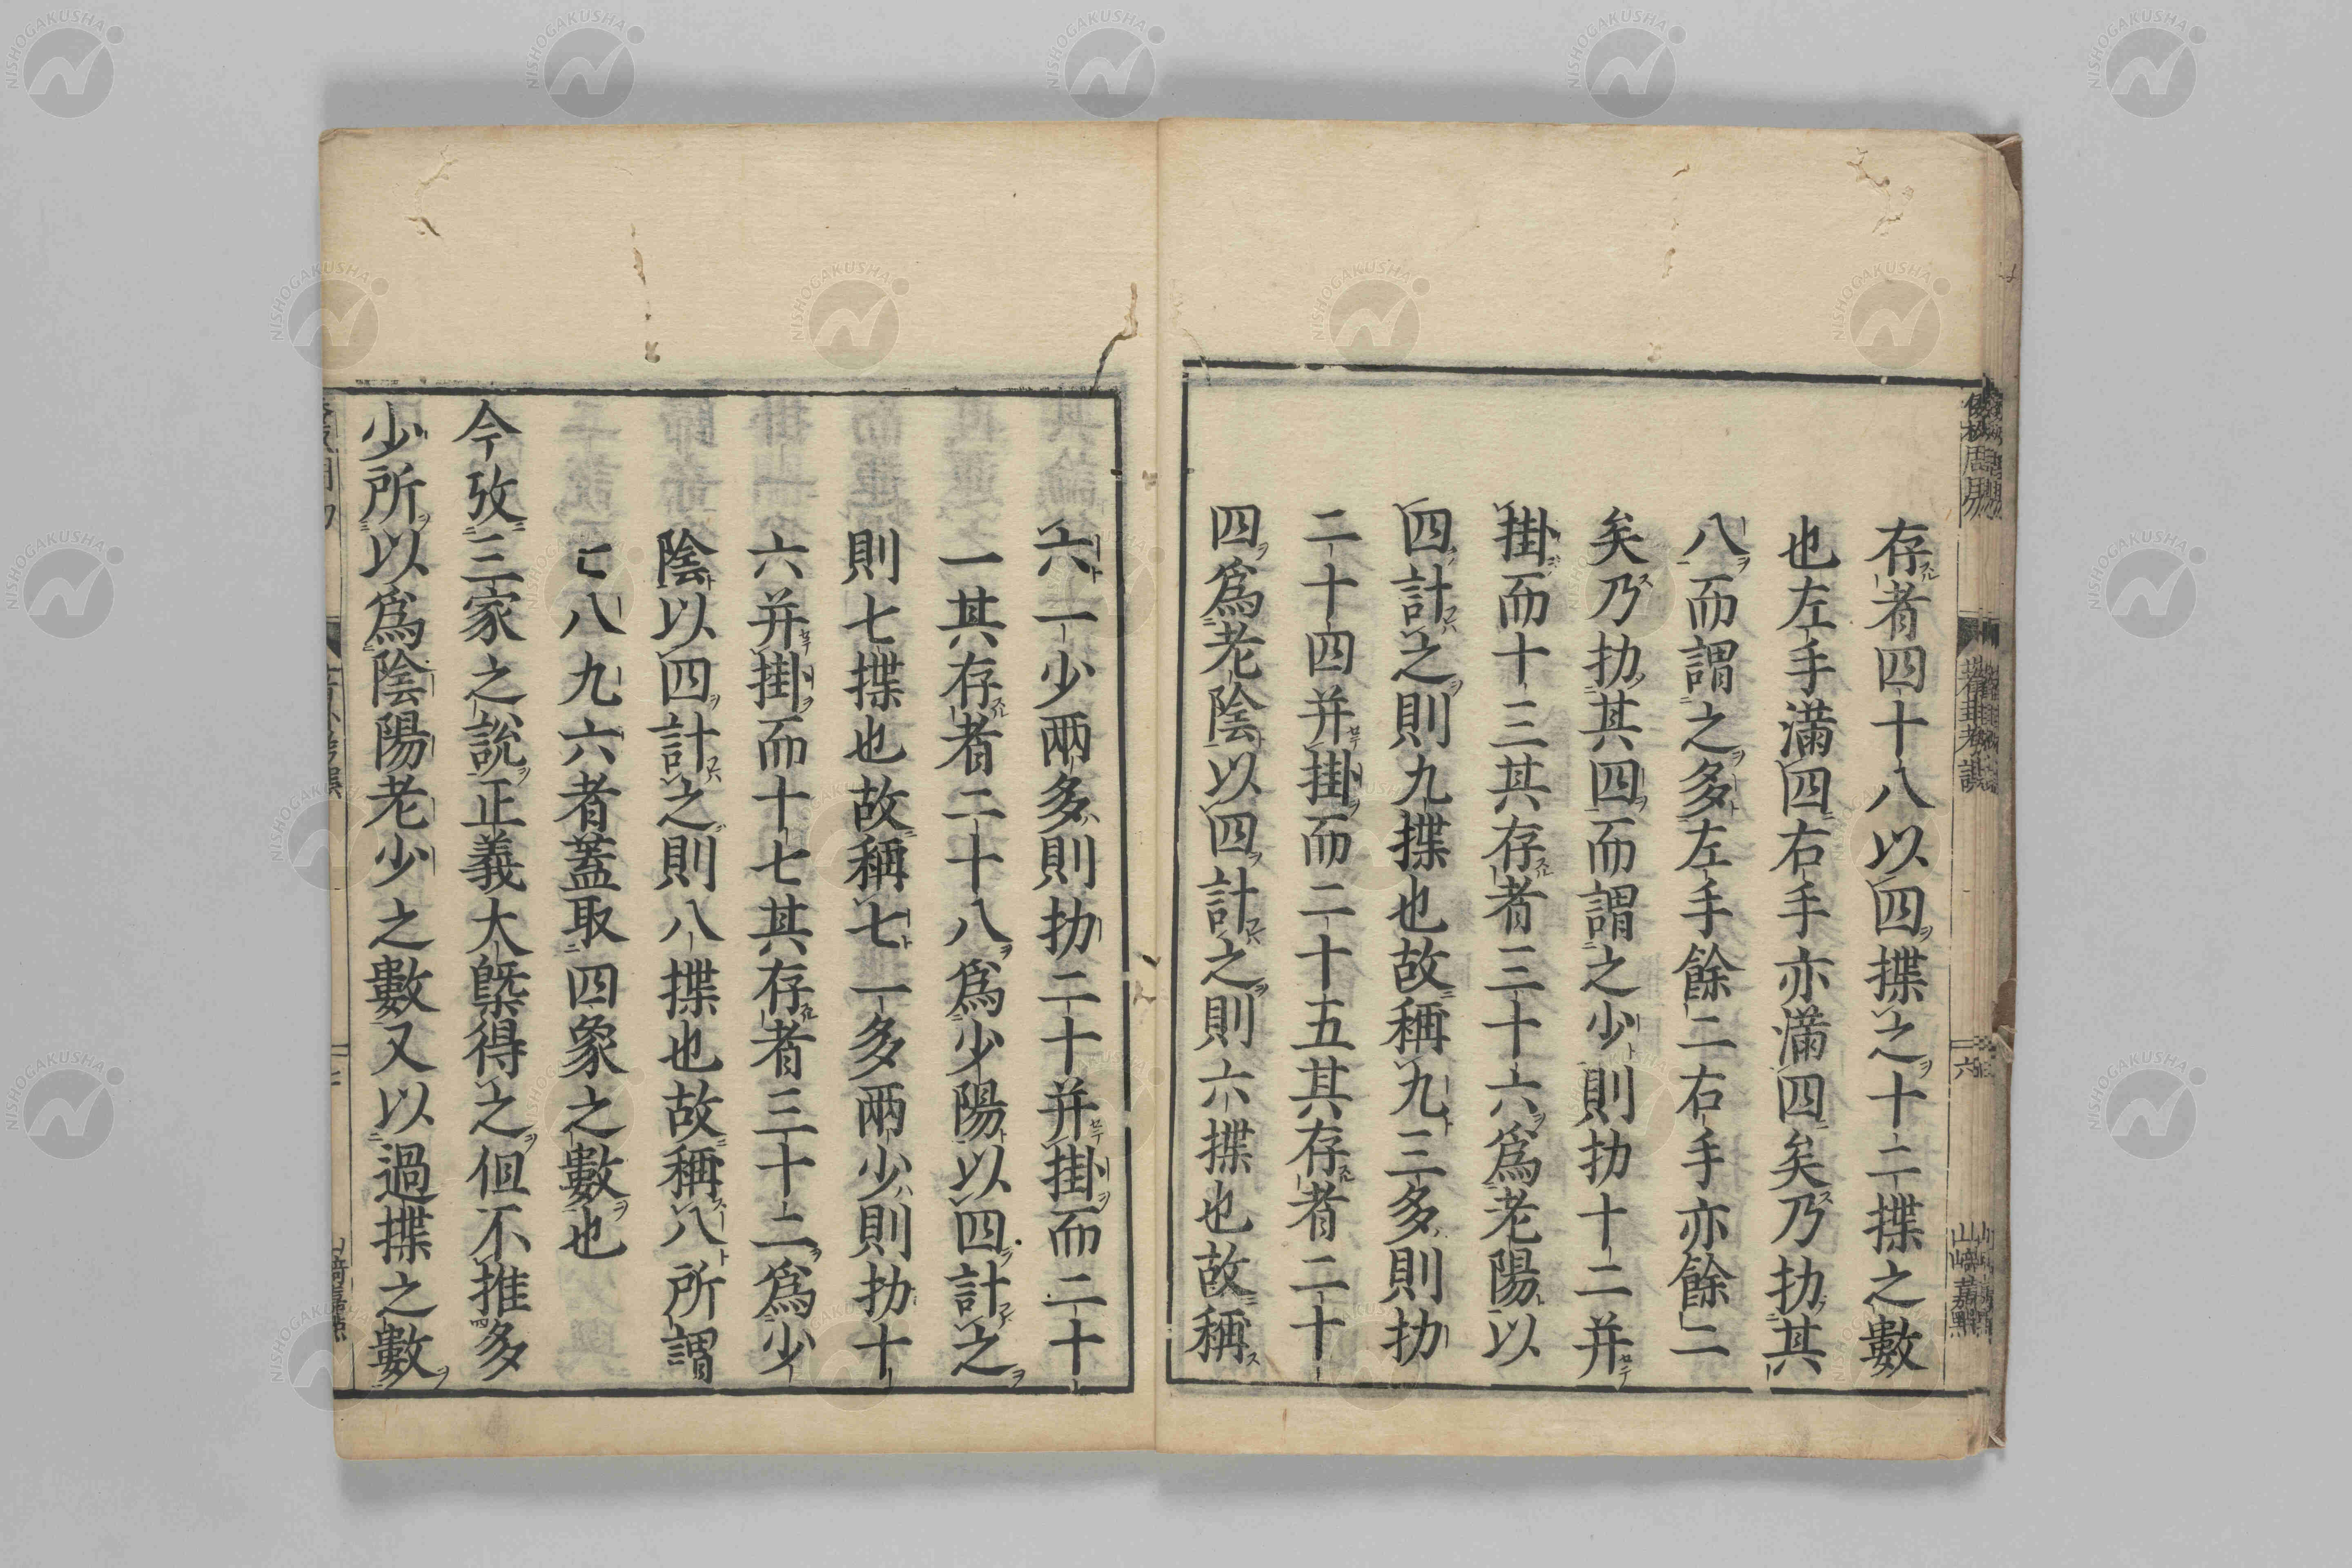 存者四十八以四揲之十二揲之數
也左手滿四右手亦滿四矣乃扐其
八而謂之多左手餘二右手亦餘二
矣乃扐其四而謂之少則扐十二并
掛而十三其存者三十六爲老陽以
四計之則九揲也故稱九三多則扐
二十四并掛而二十五其存者二十
四爲老陰以四計之則六揲也故稱
六一少兩多則扐二十并掛而二十
一其存者二十八爲少陽以四計之
則七揲也故稱七一多兩少則扐十
六并掛而十七其存者三十二爲少
陰以四計之則八揲也故稱八所謂
七八九六者蓋取四象之數也
今攷三家之說正義大槩得之但不推多
少所以爲陰陽老少之數又以過揲之數
蓍卦考誤
六
山﨑嘉點
NISHOGAKUSHA